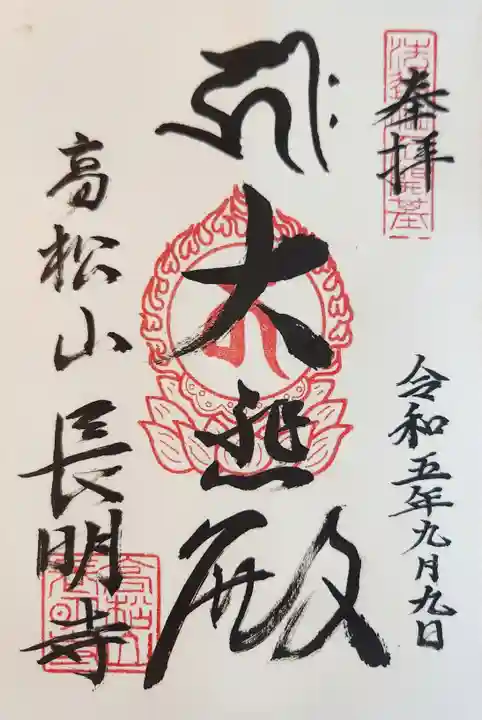 奉拝
令和五年九月九日
大悲殿
高松山 長明寺